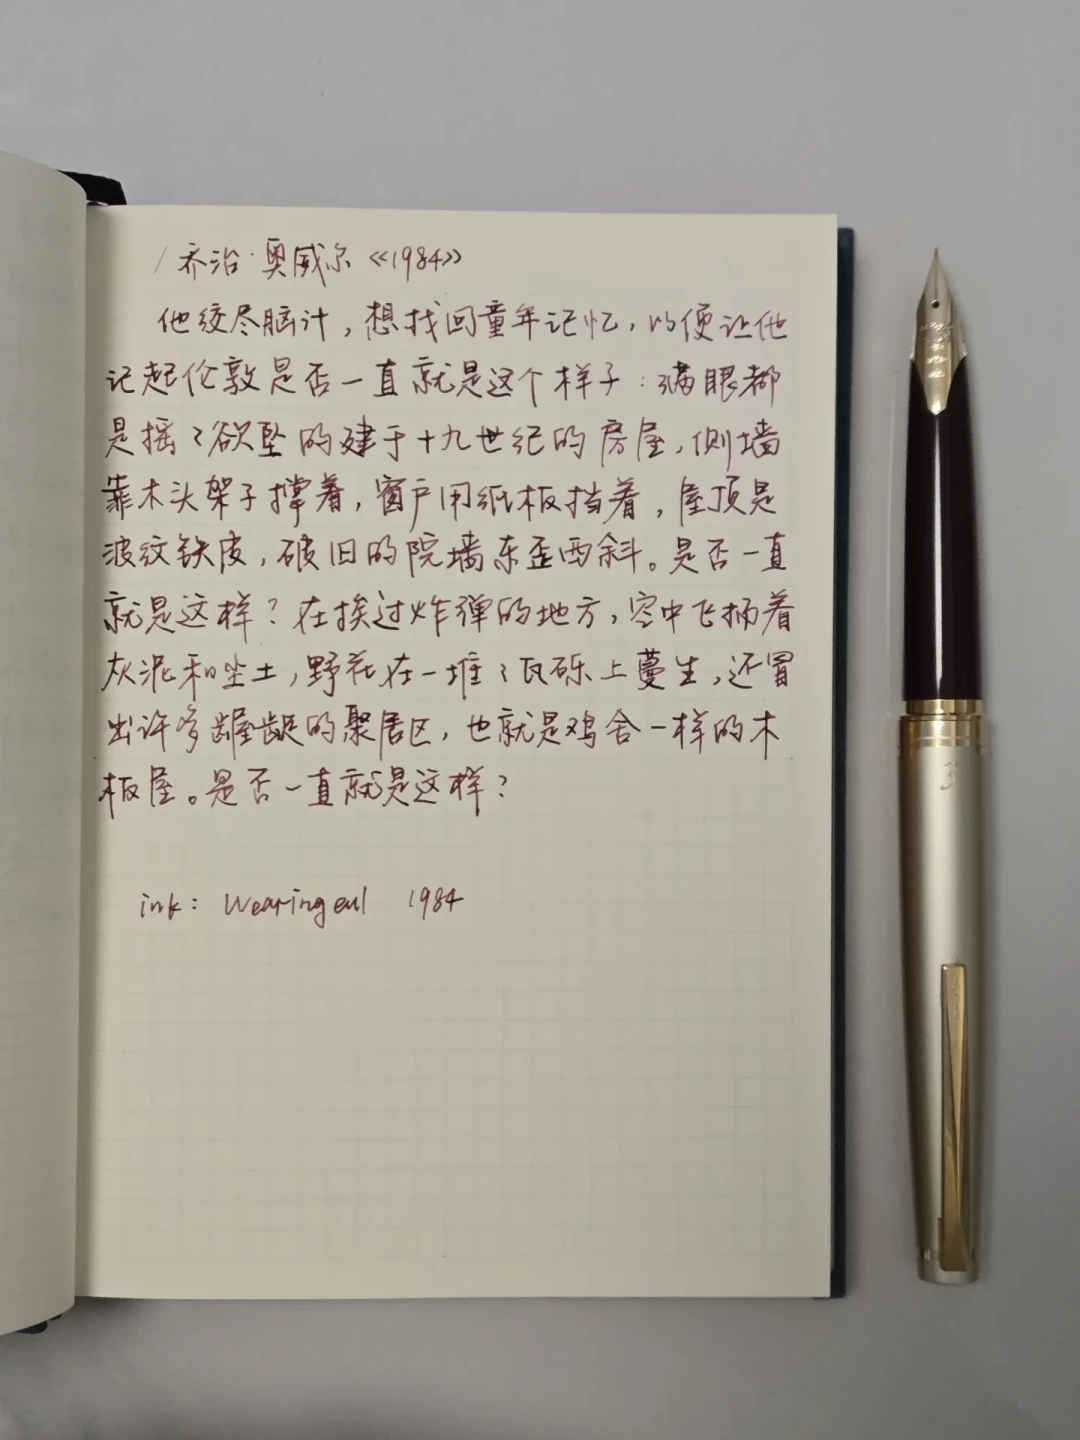 / 乔治·奥威尔《1984》
他绞尽脑汁，想找回童年记忆，以便让他
记起伦敦是否一直就是这个样子：满眼都
是摇々欲坠的建于十九世纪的房屋，侧墙
靠木头架子撑着，窗户用纸板挡着，屋顶是
波纹铁皮，破旧的院墙东歪西斜。是否一直
就是这样？在挨过炸弹的地方，空中飞扬着
灰泥和尘土，野花在一堆々瓦砾上蔓生，还冒
出许多龌龊的聚居区，也就是鸡舍一样的木
板屋。是否一直就是这样？
ink: Wearingeul 1984